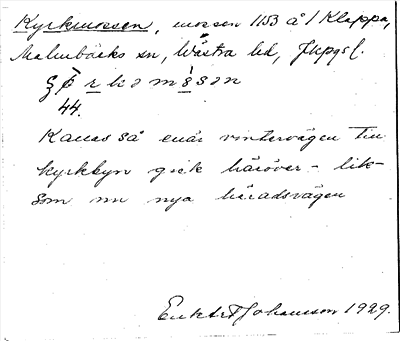 Kyrkmossen, mossen 1153 å/ Klappa,
Malmbäcks sn, Västra hd, Jkpgs l.
44.
Kallas så enär vintervägen till
kyrkbyn gick häröver - lik-
som nu nya häradsvägen
Johansson 1929.